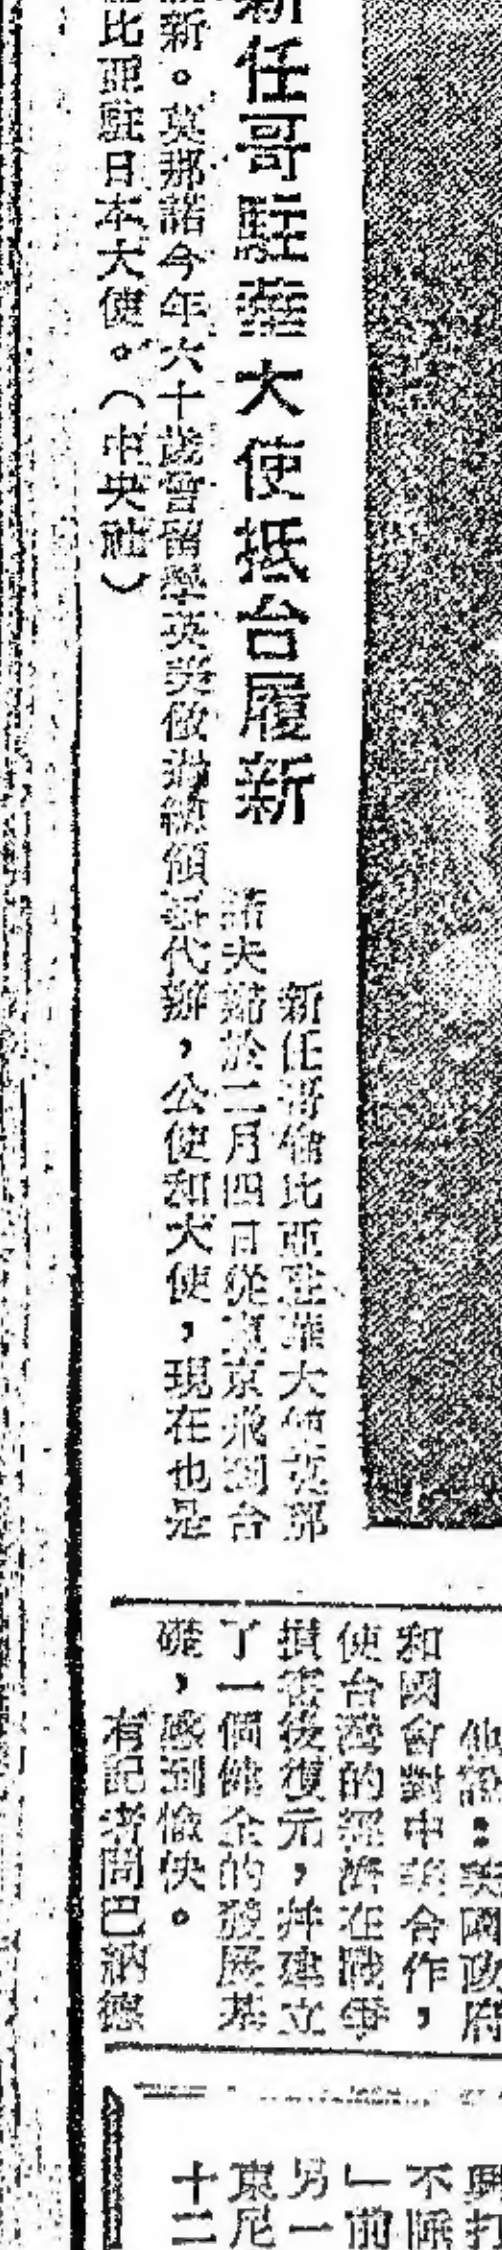 新任哥駐華大使抵台履新
新任哥倫比亞駐華大使莫那
諾夫婦於二月四日從東京飛到台
新。莫那諾今年六十歲曾留學英美後擔任領事代辦,公使和大使,現在也是
比亞駐日本大使。(中央社)
他說:美國政府
和國會對中美合作,
使台灣的經濟在戰爭
損害後復元,并建立
了一個健全的發展基
礎,感到愉快。
有記者問巴納德
不
「前
另一
東尼
十二